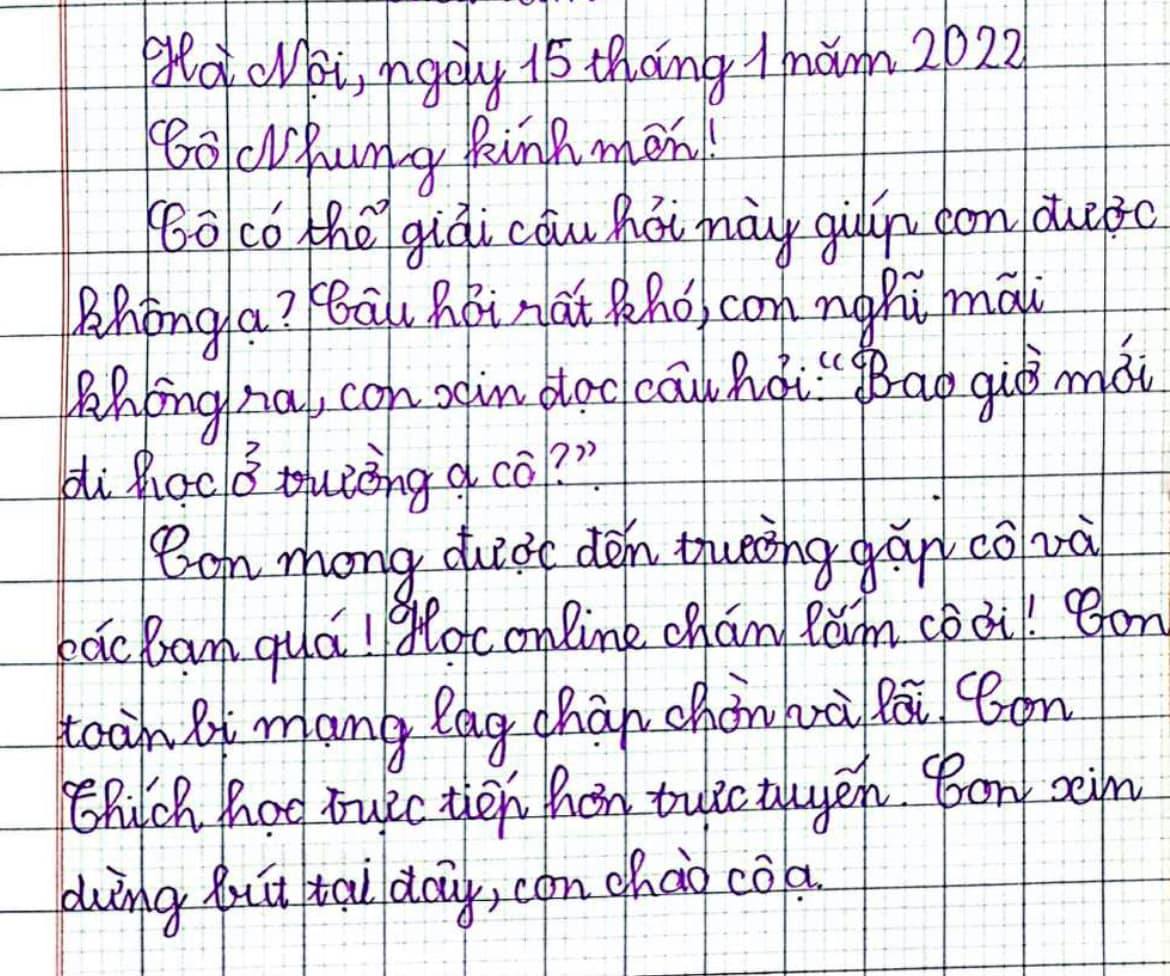 Hà Nội, ngày 15 tháng 1 năm 2022
Cô Nhung kính mến!
Cô có thể giải câu hỏi này giúp con được
không ạ? Câu hỏi rất khó, con nghĩ mãi
không ra, con xin đọc câu hỏi: "Bao giờ mới
đi học ở trường ạ cô?".
Con mong được đến trường gặp cô và
các bạn quá! Học online chán lắm cô ơi! Con
toàn bị mạng lag chập chờn và lỗi. Con
thích học trực tiếp hơn trực tuyến. Con xin
dừng bút tại đây, con chào cô ạ.